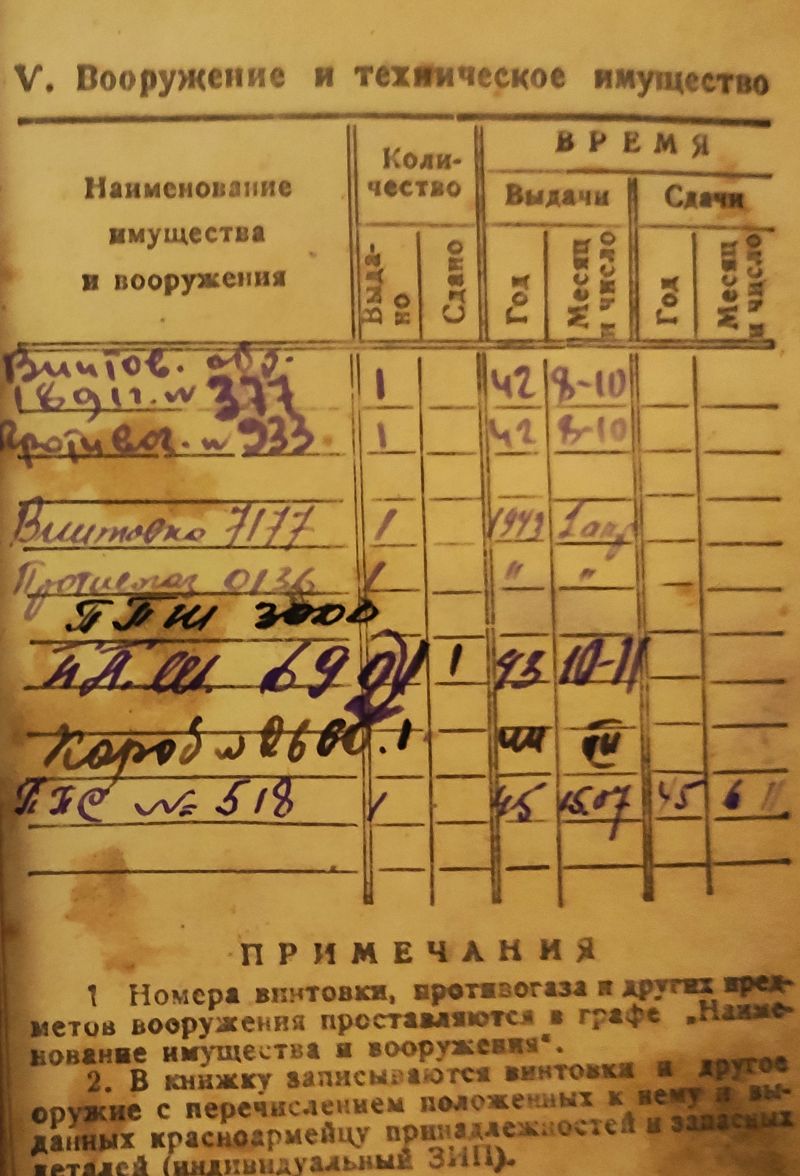 V. Вооружение и техническое имущество
Наименование
имущества
и вооружения
Коли-
чество
ВРЕМЯ
Выдачи
Сдачи
Выда-
но
Сдано
Год
Месяц
и число
Год
Месяц
и число
Винтов. обр.
1891 г. № 377 1 42 8-10
Противог. № 933 1 42 8-10
Винтовка 7177 1 1943 1 апр
Противогаз 0136 1 " "
ППШ
1 1 43 10-11
Короб № 1
ППС № 518 1 45 15.07 45 6 11
ПРИМЕЧАНИЯ
1 Номера винтовки, противогаза и других пред-
метов вооружения проставляются в графе „Наиме-
нование имущества и вооружения“.
2. В книжку записываются винтовки и другое
оружие с перечислением положенных к нему и вы-
данных красноармейцу принадлежностей и запасных
деталей (индивидуальный ЗИП).